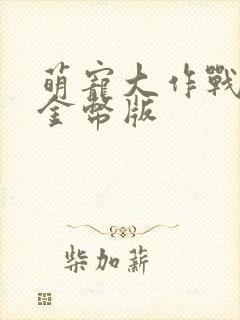 萌寵大作戰
金幣版
柴加薪